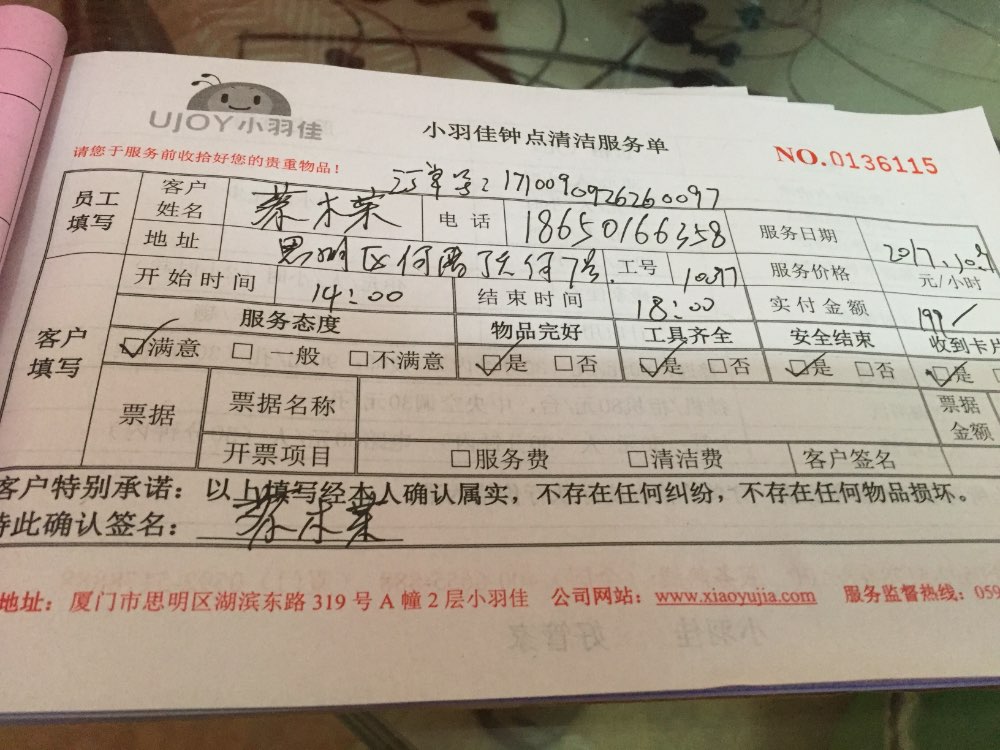 UJOY小羽佳
小羽佳钟点清洁服务单
NO.0136115
请您于服务前收拾好您的贵重物品！
订单号：1710090926260097
员工填写 客户姓名 蔡木荣 电话 18650166358 服务日期 2017.10.9
地址 思明区何厝 何 号 工号 服务价格 元/小时
开始时间 14：00 结束时间 18：00 实付金额 199
客户填写 服务态度 物品完好 工具齐全 安全结束 收到卡片
☑满意 □一般 □不满意 ☑是 □否 ☑是 □否 ☑是 □否 ☑是
票据 票据名称 票据金额
开票项目 □服务费 □清洁费 客户签名
客户特别承诺：以上填写经本人确认属实，不存在任何纠纷，不存在任何物品损坏。
特此确认签名：蔡木荣
地址：厦门市思明区湖滨东路 319 号 A 幢 2 层小羽佳 公司网站：www.xiaoyujia.com 服务监督热线：059